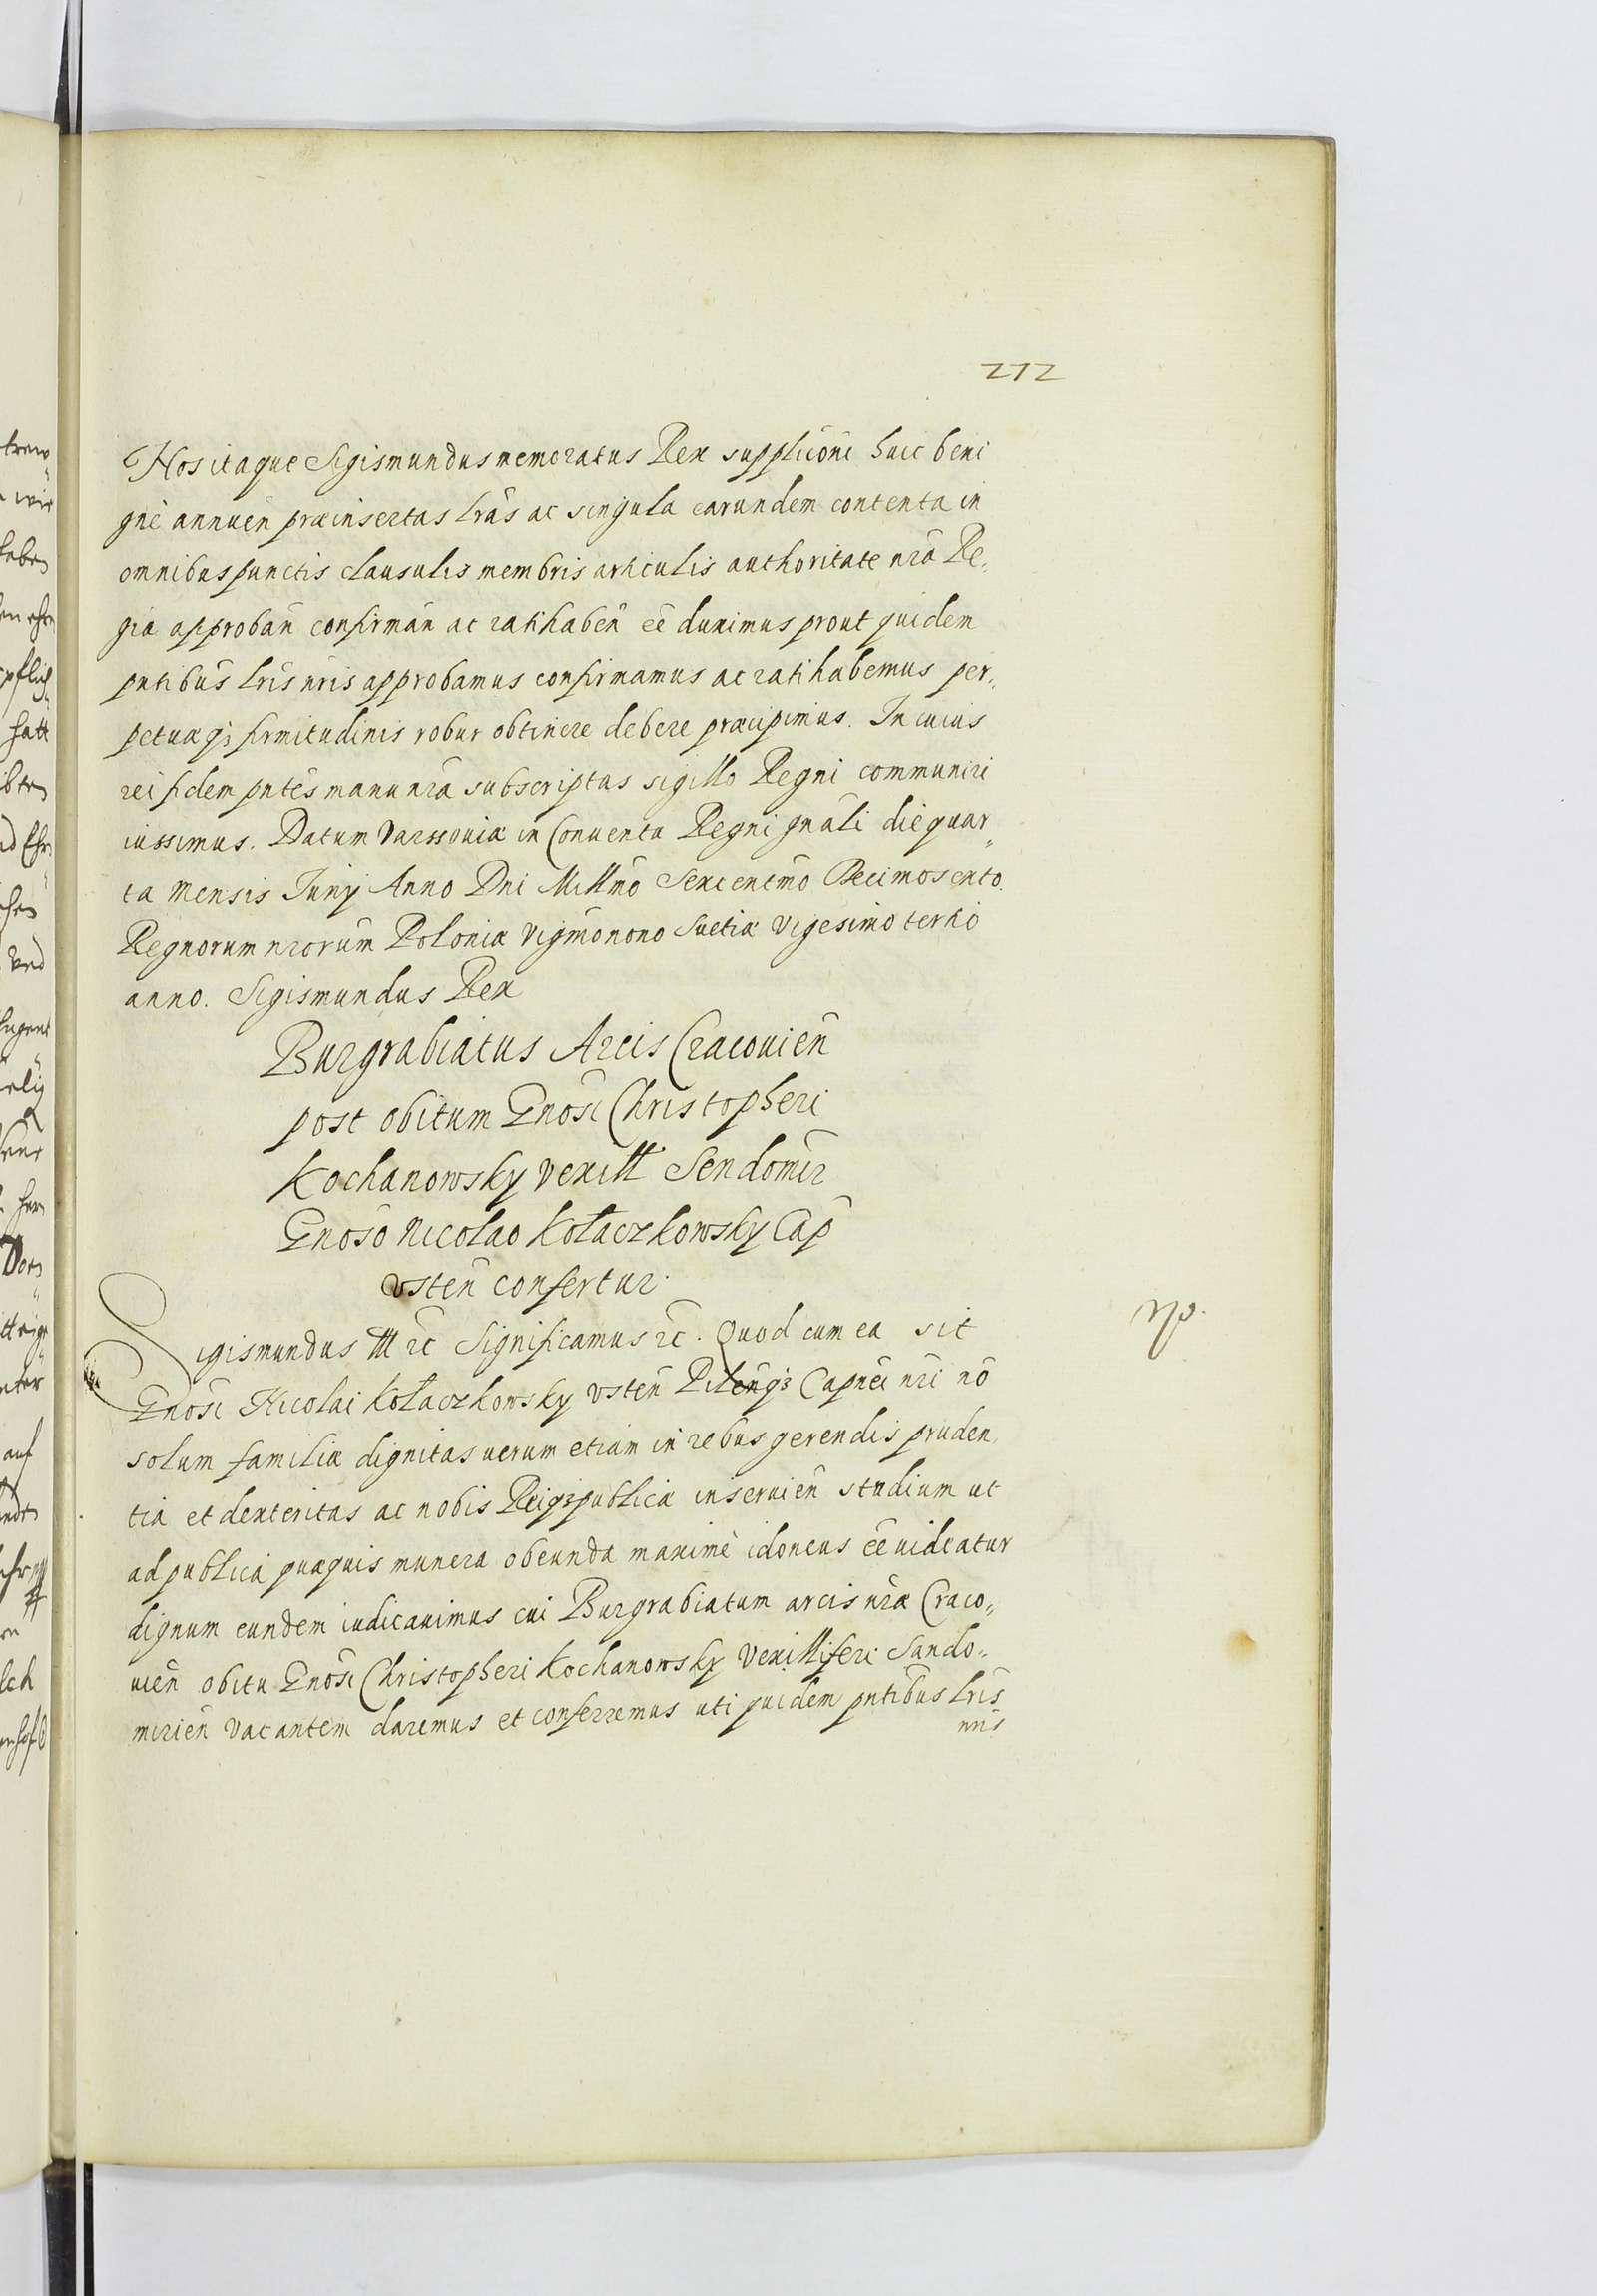 212
Nos itaque Sigismundus memoratus Rex suppliconi huic beni
gne annuen̄ præinsertas lr̄as ac singula earundem contenta in
omnibus punctis clausulis membris articulis authoritate nr̄a Re„
gia approban̄ confirman̄ ac ratihaben̄ eē duximus prout quidem
pn̄tibus lr̄is nr̄is approbamus confirmamus ac ratihabemus per„
petuæq; firmitudinis robur obtinere debere præcipimus. In cuius
rei fidem pn̄tes manu nr̄a subscriptas sigillo Regni communiri
iussimus. Datum Varssouiæ in Conuentu Regni gn̄ali die quar„
ta Mensis Iunij Anno Dni Millmo Sexcentmo Decimosexto.
Regnorum nr̄orum Poloniæ Vigmonono Suetiæ Vigesimo tertio
anno. Sigismundus Rex
Burgrabiatus Arcis Cracouien̄
post obitum Gnosi Christopheri
Kochanowsky Vexill Sendomir
Gnoso Nicolao Kołaczkowsky Cap
Vsten̄ confertur.
Sigismundus III rc̄ Significamus rc̄. Quod cum ea sit
Gnosi Nicolai Kołaczkowsky Vsten̄ Pilenq; Capnei nr̄i nō
solum familiæ dignitas uerum etiam in rebus gerendis pruden,
tia et dexteritas ac nobis Reiq; publicæ inseruien̄ studium ut
ad publica quæquis munera obeunda maximè idoneus eē uideatur
dignum eundem iudicauimus cui Burgrabiatum arcis nr̄æ Craco„
uien̄ obitu Gnosi Christopheri Kochanowsky Vexilliferi Sando„
mirien̄ vacantem daremus et conferremus uti quidem pn̄tibus lr̄is
nr̄is